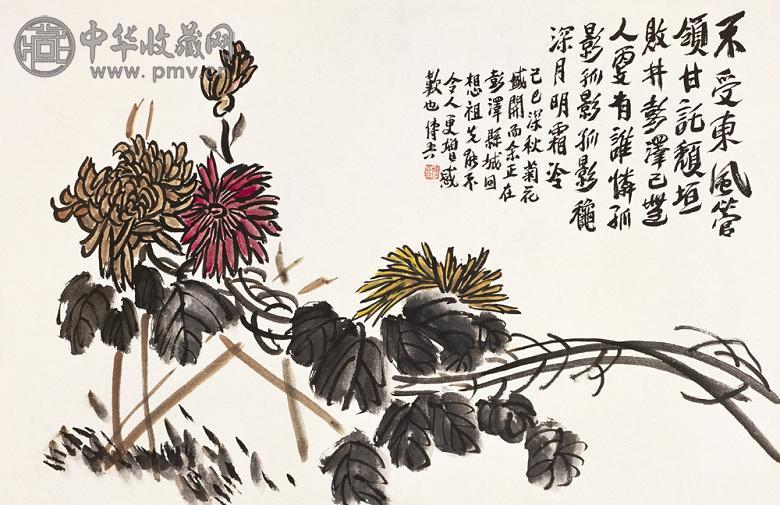 中华收藏网
www.pmv.cn
不受東風管
領甘託頹垣
敗井彭澤已無
人更有誰憐孤
影孤影孤影龝
深月明霜冷
己巳深秋菊花
盛開而余正在
彭澤縣城回
想祖先能不
令人更增感
歎也